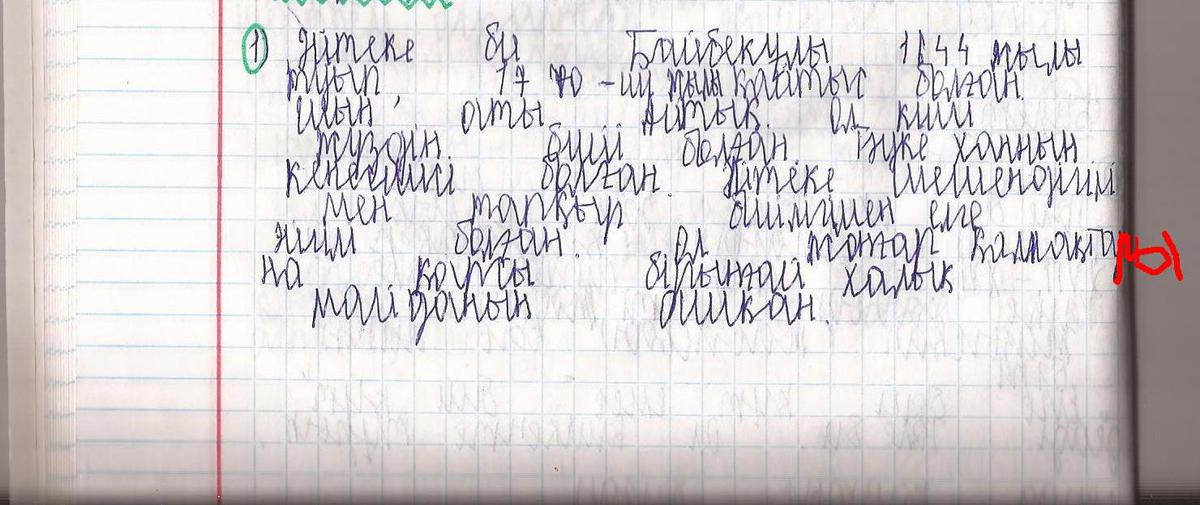 1) Әйтеке би Байбекулы 1644 жылы
туып, 17 70-шу жылы қайтыс болған.
Шын аты Айтық. Ол киші
жуздін биіі болған. Тәуке ханнын
кенесшісі болған. Әйтеке шешендігі
мен тапқыр билігімен елге
әйгілі болған. Ол жоңғар қалмақтары
на қарсы бірыңғай халық
майданын ашқан.